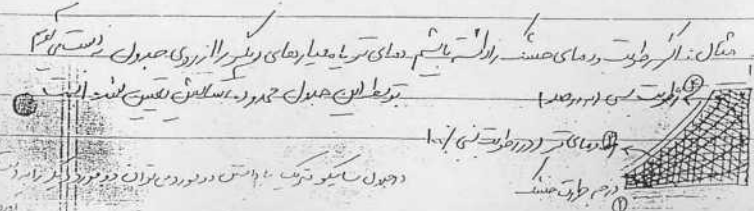 مثال: اگر رطوبت و دمای خشک را داشته باشیم دمای تر یا معیارهای دیگر را از روی جدول بدست می آوریم
توسط این جدول محدوده آسایش تعیین شده است
② رطوبت نسبی (در صد)
③ دمای تر (در رطوبت نسبی ۱۰۰٪)
در جدول سایکومتریک با داشتن دو مورد می‌توان دو مورد دیگر را
درجه حرارت خشک
①